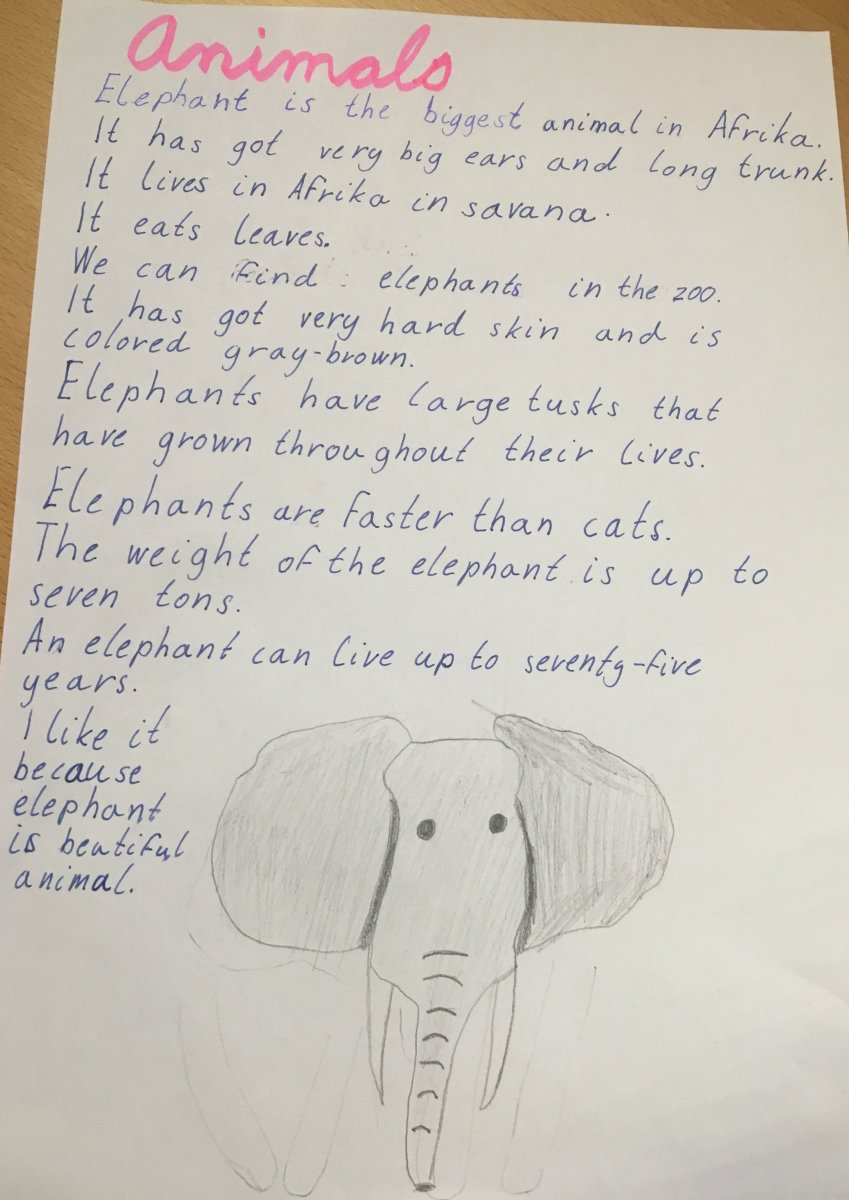 Animals
Elephant is the biggest animal in Afrika.
It has got very big ears and long trunk.
It lives in Afrika in savana.
It eats leaves.
We can find elephants in the zoo.
It has got very hard skin and is
colored gray-brown.
Elephants have large tusks that
have grown throughout their lives.
Elephants are faster than cats.
The weight of the elephant is up to
seven tons.
An elephant can live up to seventy-five
years.
I like it
because
elephant
is beatiful
animal.